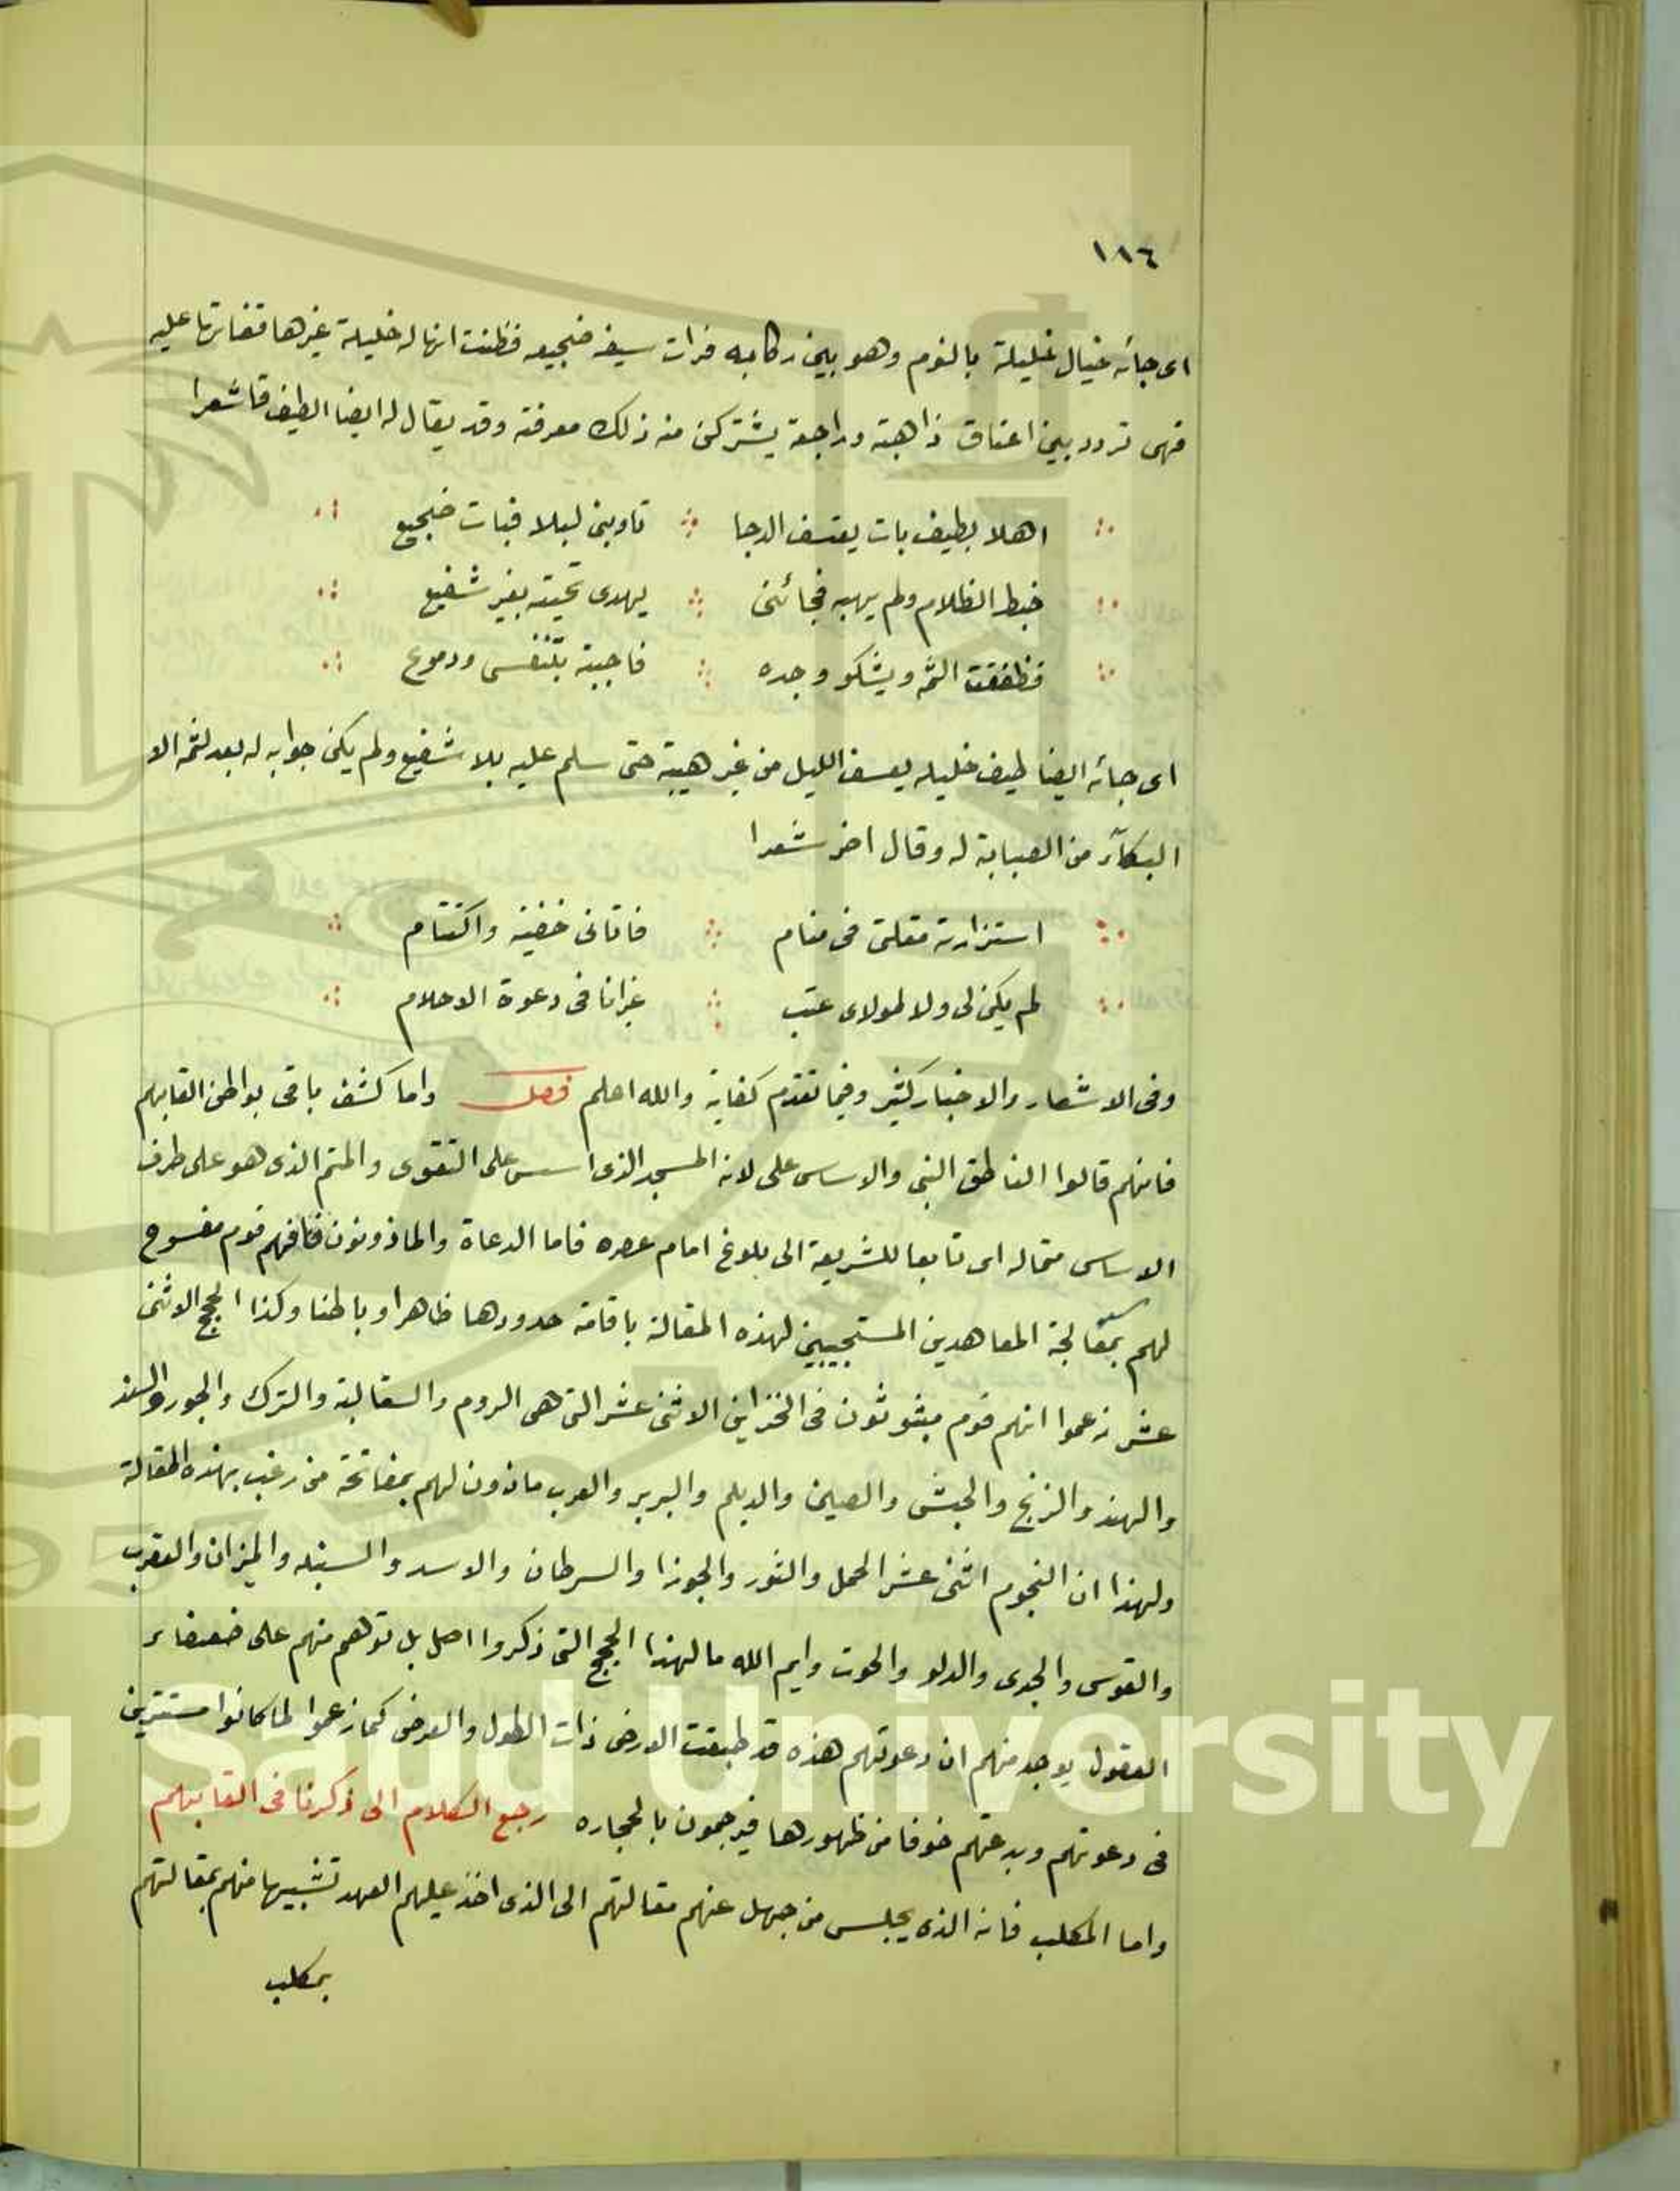 ١١٦
اى جائه خيال خليلة بالنوم وهو بين ركابه فرات سيفه ضجيعه فظنت انها له خليلة غيرها عليه
فهى تردد بين اعناق ذاهبة وراجعة يشتركن منه ذلك معرفته وقد يقال له ايضا الطيف شعرا
اهلا بطيف بات يعتسف الدجا تاوبنى ليلا فبات ضجيع
خبط الظلام ولم يهبه فجائنى يهدى تحيته بغير شفيع
فطفقت الثمه ويشكو وجده فاجبته بتنفس ودموع
اى جائه ايضا طيف خليله يعسف الليل من غير هيبة حتى سلم عليه بلا شفيع ولم يكن جوابه له بعد لثمه الا
البكآء من الصبابة له وقال اخر شعرا
استزارته مقلتى فى منام فاتانى خفية واكتتام
لم يكن لى ولا لمولاى عتب غيرانا فى دعوة الاحلام
وفى الاشعار والاخبار كثير وفيما تقدم كفاية والله اعلم فصل واما كشف باقى بواطن القابهم
فانهم قالوا الناطق النبى والاساس على لانه المسجد الذى اسس على التقوى والمتم الذى هو على طرف
الاساس متماله اى تابعا للشريعة الى بلوغ امام عصره فاما الدعاة والماذونون فانهم قوم مفسوح
لهم بمعالجة المعاهدين المستجيبين لهذه المقالة باقامة حدودها ظاهرا وباطنا وكذا الحجج الاثنى
عشر زعموا انهم قوم مبثوثون فى الخزاين الاثنى عشر التى هى الروم والسقالبة والترك والجور والسند
والهند والزنج والحبش والصين والديلم والبربر والعرب ماذون لهم بمفاتحة من رغب بهذه المقالة
ولهذا ان النجوم اثنى عشر الحمل والثور والجوزا والسرطان والاسد والسنبله والميزان والعقرب
والقوس والجدى والدلو والحوت وايم الله ما لهذا الحجج التى ذكروا اصل بل توهم منهم على ضعفاء
العقول يوجد منهم ان دعوتهم هذه قد طبقت الارض ذات الطول والعرض كما زعموا لما كانوا مستترين
فى دعوتهم وبدعتهم خوفا من ظهورها فيرجمون بالحجاره رجع الكلام الى ذكرنا فى القابهم
واما المكلب فانه الذى يجلس من جهل عنهم مقالتهم الى الذى اخذ عليهم العهد تشبيها منهم بمقالتهم
بمكلب
King Saud University